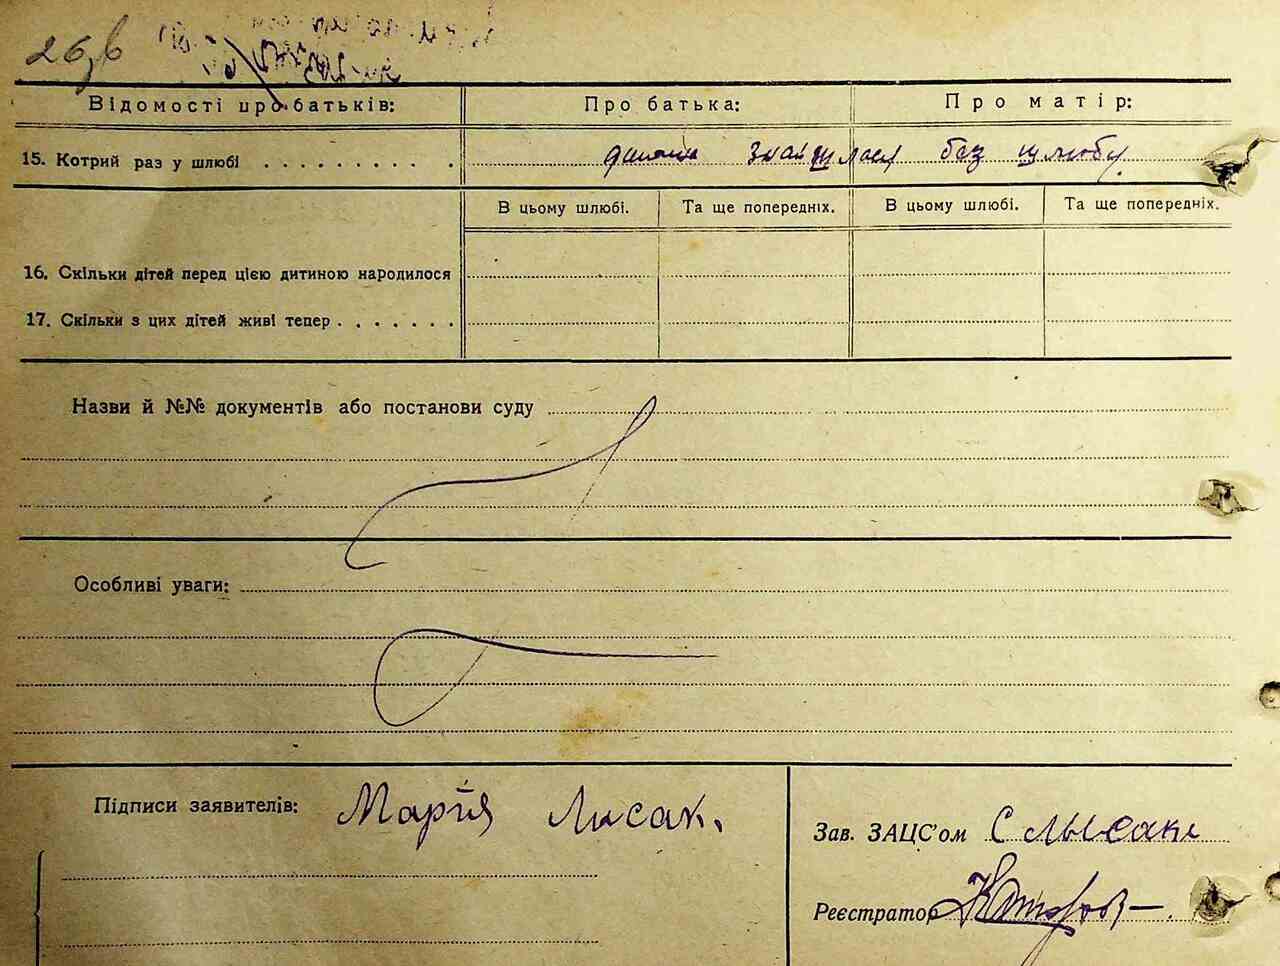 26,6
Відомості про батьків: Про батька: Про матір:
15. Котрий раз у шлюбі . . . . . . . . . . знайшлась без шлюбу.
В цьому шлюбі. Та ще попередніх. В цьому шлюбі. Та ще попередніх.
16. Скільки дітей перед цією дитиною народилося
17. Скільки з цих дітей живі тепер . . . . . . .
Назви й №№ документів або постанови суду
Особливі уваги:
Підписи заявителів: Марія Лисак.
Зав. ЗАЦС'ом
Реєстратор